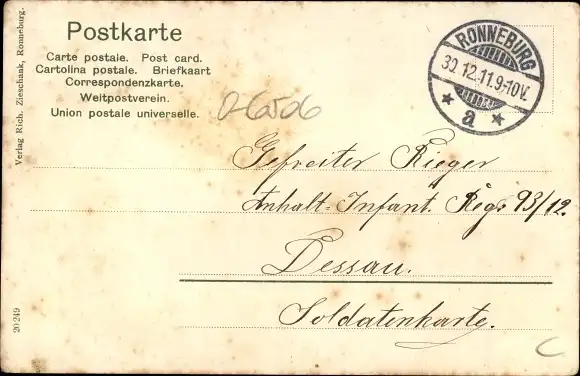 Postkarte
Carte postale. Post card.
Cartolina postale. Briefkaart
Correspondenzkarte.
Weltpostverein.
Union postale universelle.
Verlag Rich. Zieschank, Ronneburg.
RONNEBURG
30.12.11.9-10V.
* a *
06506
Gefreiter Rieger
Anhalt-Infant. Regs 93/12.
Dessau.
Soldatenkarte.
20 249